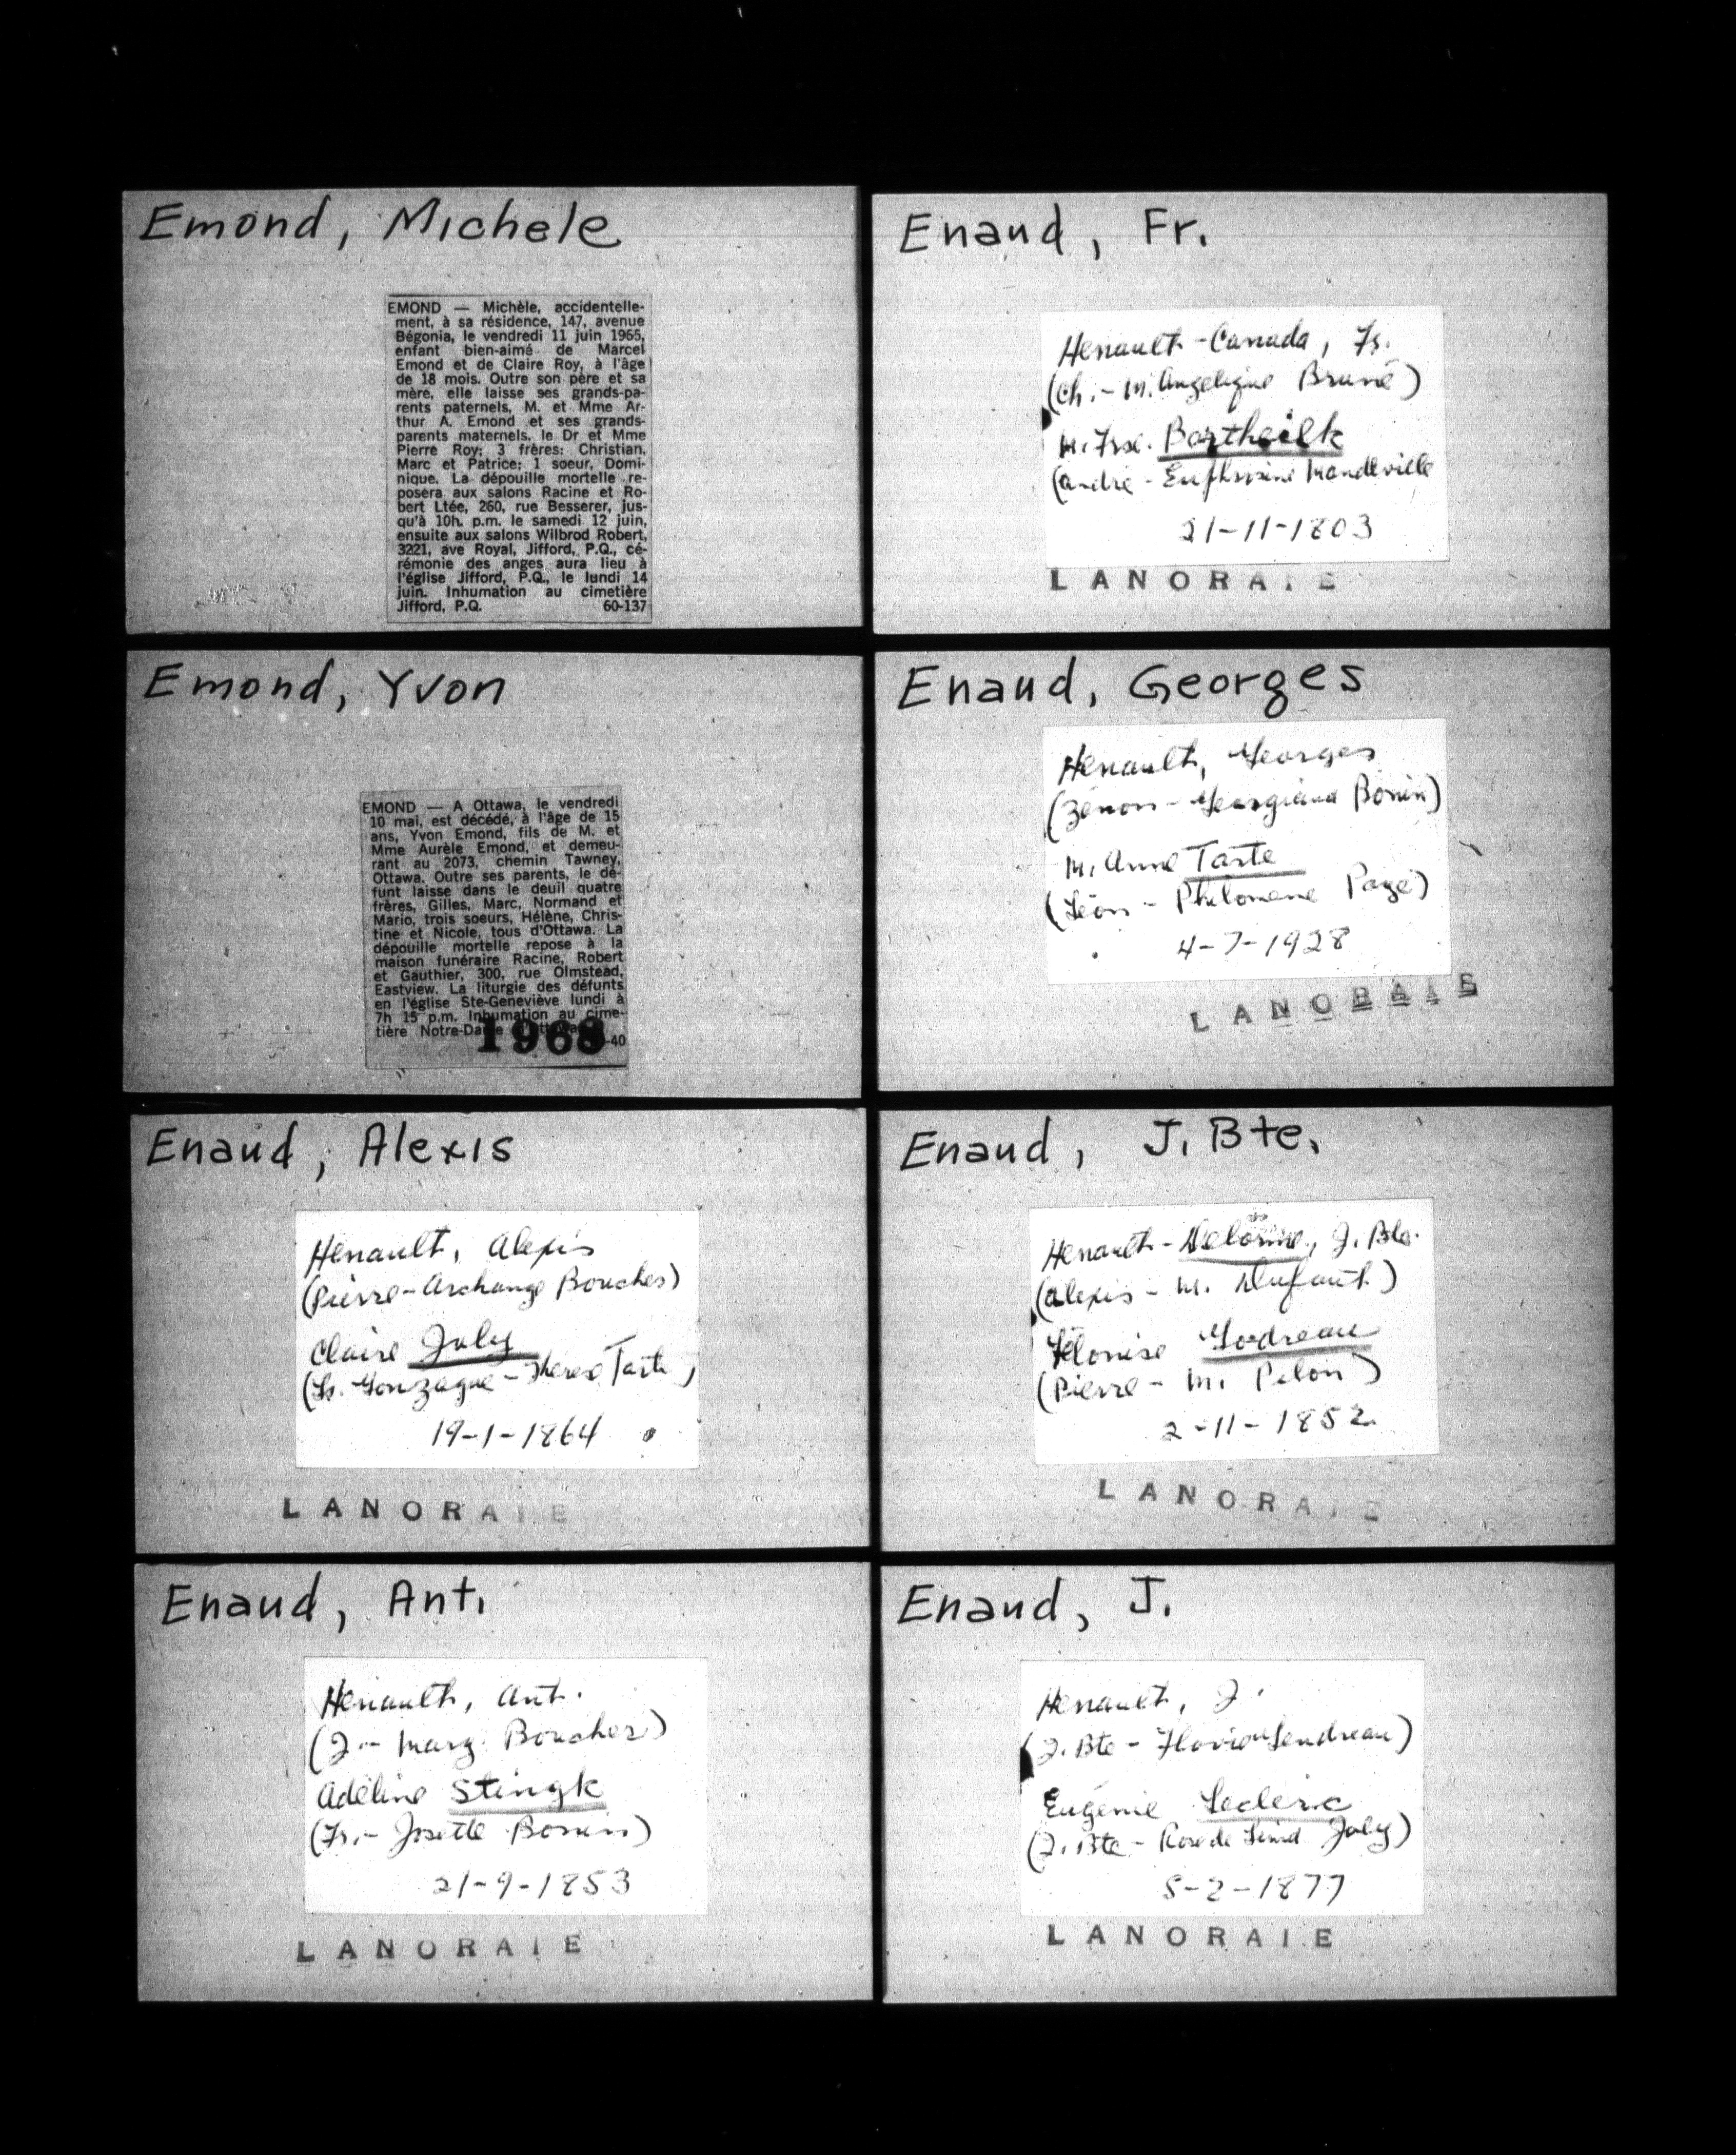 Emond, Michele
EMOND — Michèle, accidentelle-
ment, à sa résidence, 147, avenue
Bégonia, le vendredi 11 juin 1965,
enfant bien-aimé de Marcel
Emond et de Claire Roy, à l'âge
de 18 mois. Outre son père et sa
mère, elle laisse ses grands-pa-
rents paternels, M. et Mme Ar-
thur A. Emond et ses grands-
parents maternels, le Dr et Mme
Pierre Roy; 3 frères: Christian,
Marc et Patrice; 1 soeur, Domi-
nique. La dépouille mortelle re-
posera aux salons Racine et Ro-
bert Ltée, 260, rue Besserer, jus-
qu'à 10h. p.m. le samedi 12 juin,
ensuite aux salons Wilbrod Robert,
3221, ave Royal, Jifford, P.Q., cé-
rémonie des anges aura lieu à
l'église Jifford, P.Q., le lundi 14
juin. Inhumation au cimetière
Jifford, P.Q. 60-137
Emond, Yvon
EMOND — A Ottawa, le vendredi
10 mai, est décédé, à l'âge de 15
ans, Yvon Emond, fils de M. et
Mme Aurèle Emond, et demeu-
rant au 2073, chemin Tawney,
Ottawa. Outre ses parents, le dé-
funt laisse dans le deuil quatre
frères, Gilles, Marc, Normand et
Mario, trois soeurs, Hélène, Chris-
tine et Nicole, tous d'Ottawa. La
dépouille mortelle repose à la
maison funéraire Racine, Robert
et Gauthier, 300, rue Olmstead,
Eastview. La liturgie des défunts
en l'église Ste-Geneviève lundi à
7h 15 p.m. Inhumation au cime-
tière Notre-Dame
1968 -40
Enaud, Alexis
Henault, Alexis
(Pierre - Archange Boucher)
Claire Joly
(Ls. Gonzague - Therese Tarte)
19-1-1864
LANORAIE
Enaud, Ant.
Henault, Ant.
(J. - Marg. Boucher)
Adéline Stingk
(Fr. - Josette Bonin)
21-9-1853
LANORAIE
Enaud, Fr.
Henault-Canada, Fs.
(Ch. - M. Angelique Bruné)
M. Frse. Bartheilk
(André - Euphrosine Mandeville
21-11-1803
LANORAIE
Enaud, Georges
Henault, Georges
(Zénon - Georgiana Bonin)
M. Anne Tarte
(Léon - Philomene Page)
4-7-1928
LANORAIE
Enaud, J. Bte.
Henault-Delorme, J. Bte.
(Alexis - M. Dufault)
Godreau
(Pierre - M. Pelon)
2-11-1852
LANORAIE
Enaud, J.
Henault, J.
(J. Bte - Gendreau)
Eugénie Leclerc
(J. Bte - Rose de Lima Joly)
5-2-1877
LANORAIE